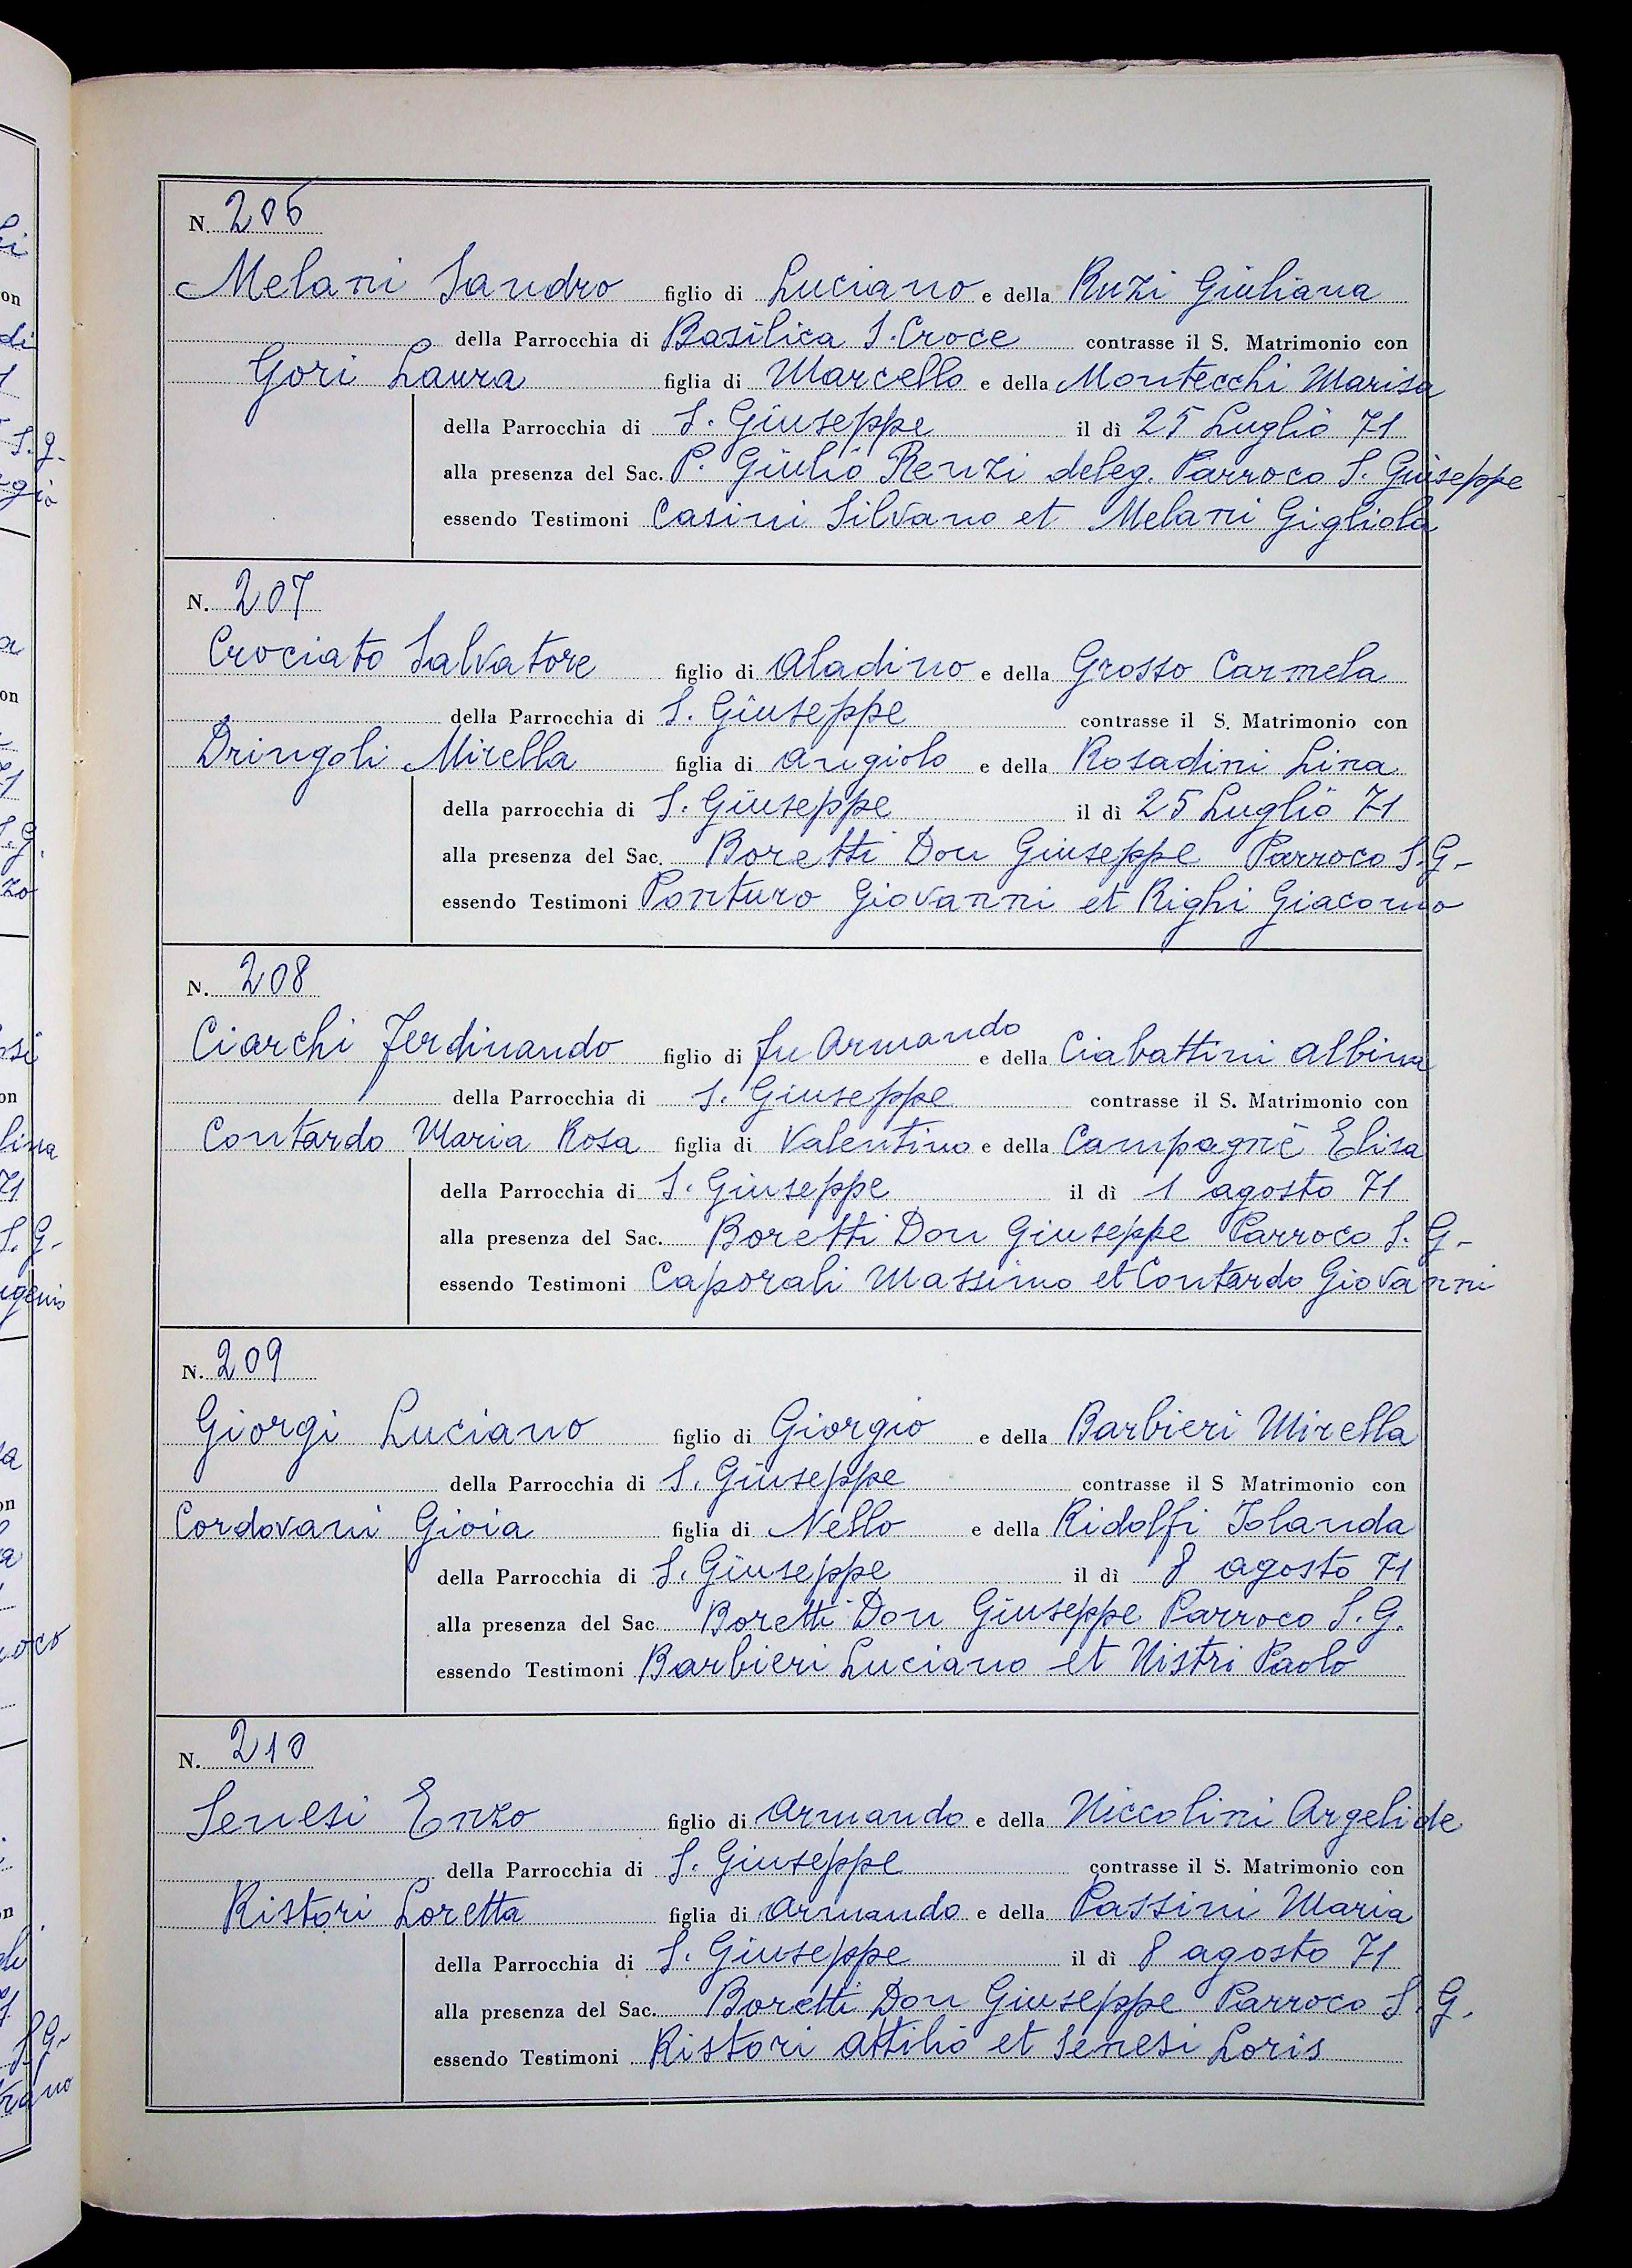 N. 206
Melani Sandro figlio di Luciano e della Ruzi Giuliana
della Parrocchia di Basilica S. Croce contrasse il S. Matrimonio con
Gori Laura figlia di Marcello e della Montecchi Marisa
della Parrocchia di S. Giuseppe il dì 25 Luglio 71
alla presenza del Sac. P. Giulio Renzi deleg. Parroco S. Giuseppe
essendo Testimoni Casini Silvano et Melani Gigliola
N. 207
Crociato Salvatore figlio di Aladino e della Grosso Carmela
della Parrocchia di S. Giuseppe contrasse il S. Matrimonio con
Dringoli Mirella figlia di Angiolo e della Rosadini Lina
della parrocchia di S. Giuseppe il dì 25 Luglio 71
alla presenza del Sac. Boretti Don Giuseppe Parroco S.G.
essendo Testimoni Ponturo Giovanni et Righi Giacomo
N. 208
Ciarchi Ferdinando figlio di fu Armando e della Ciabattini Albina
della Parrocchia di S. Giuseppe contrasse il S. Matrimonio con
Contardo Maria Rosa figlia di Valentino e della Campagnè Elisa
della Parrocchia di S. Giuseppe il dì 1 agosto 71
alla presenza del Sac. Boretti Don Giuseppe Parroco S. G.
essendo Testimoni Caporali Massimo et Contardo Giovanni
N. 209
Giorgi Luciano figlio di Giorgio e della Barbieri Mirella
della Parrocchia di S. Giuseppe contrasse il S Matrimonio con
Cordovani Gioia figlia di Nello e della Ridolfi Iolanda
della Parrocchia di S. Giuseppe il dì 8 agosto 71
alla presenza del Sac. Boretti Don Giuseppe Parroco S. G.
essendo Testimoni Barbieri Luciano et Nistri Paolo
N. 210
Senesi Enzo figlio di Armando e della Niccolini Argelide
della Parrocchia di S. Giuseppe contrasse il S. Matrimonio con
Ristori Loretta figlia di Armando e della Passini Maria
della Parrocchia di S. Giuseppe il dì 8 agosto 71
alla presenza del Sac. Boretti Don Giuseppe Parroco S. G.
essendo Testimoni Ristori Attilio et Senesi Loris